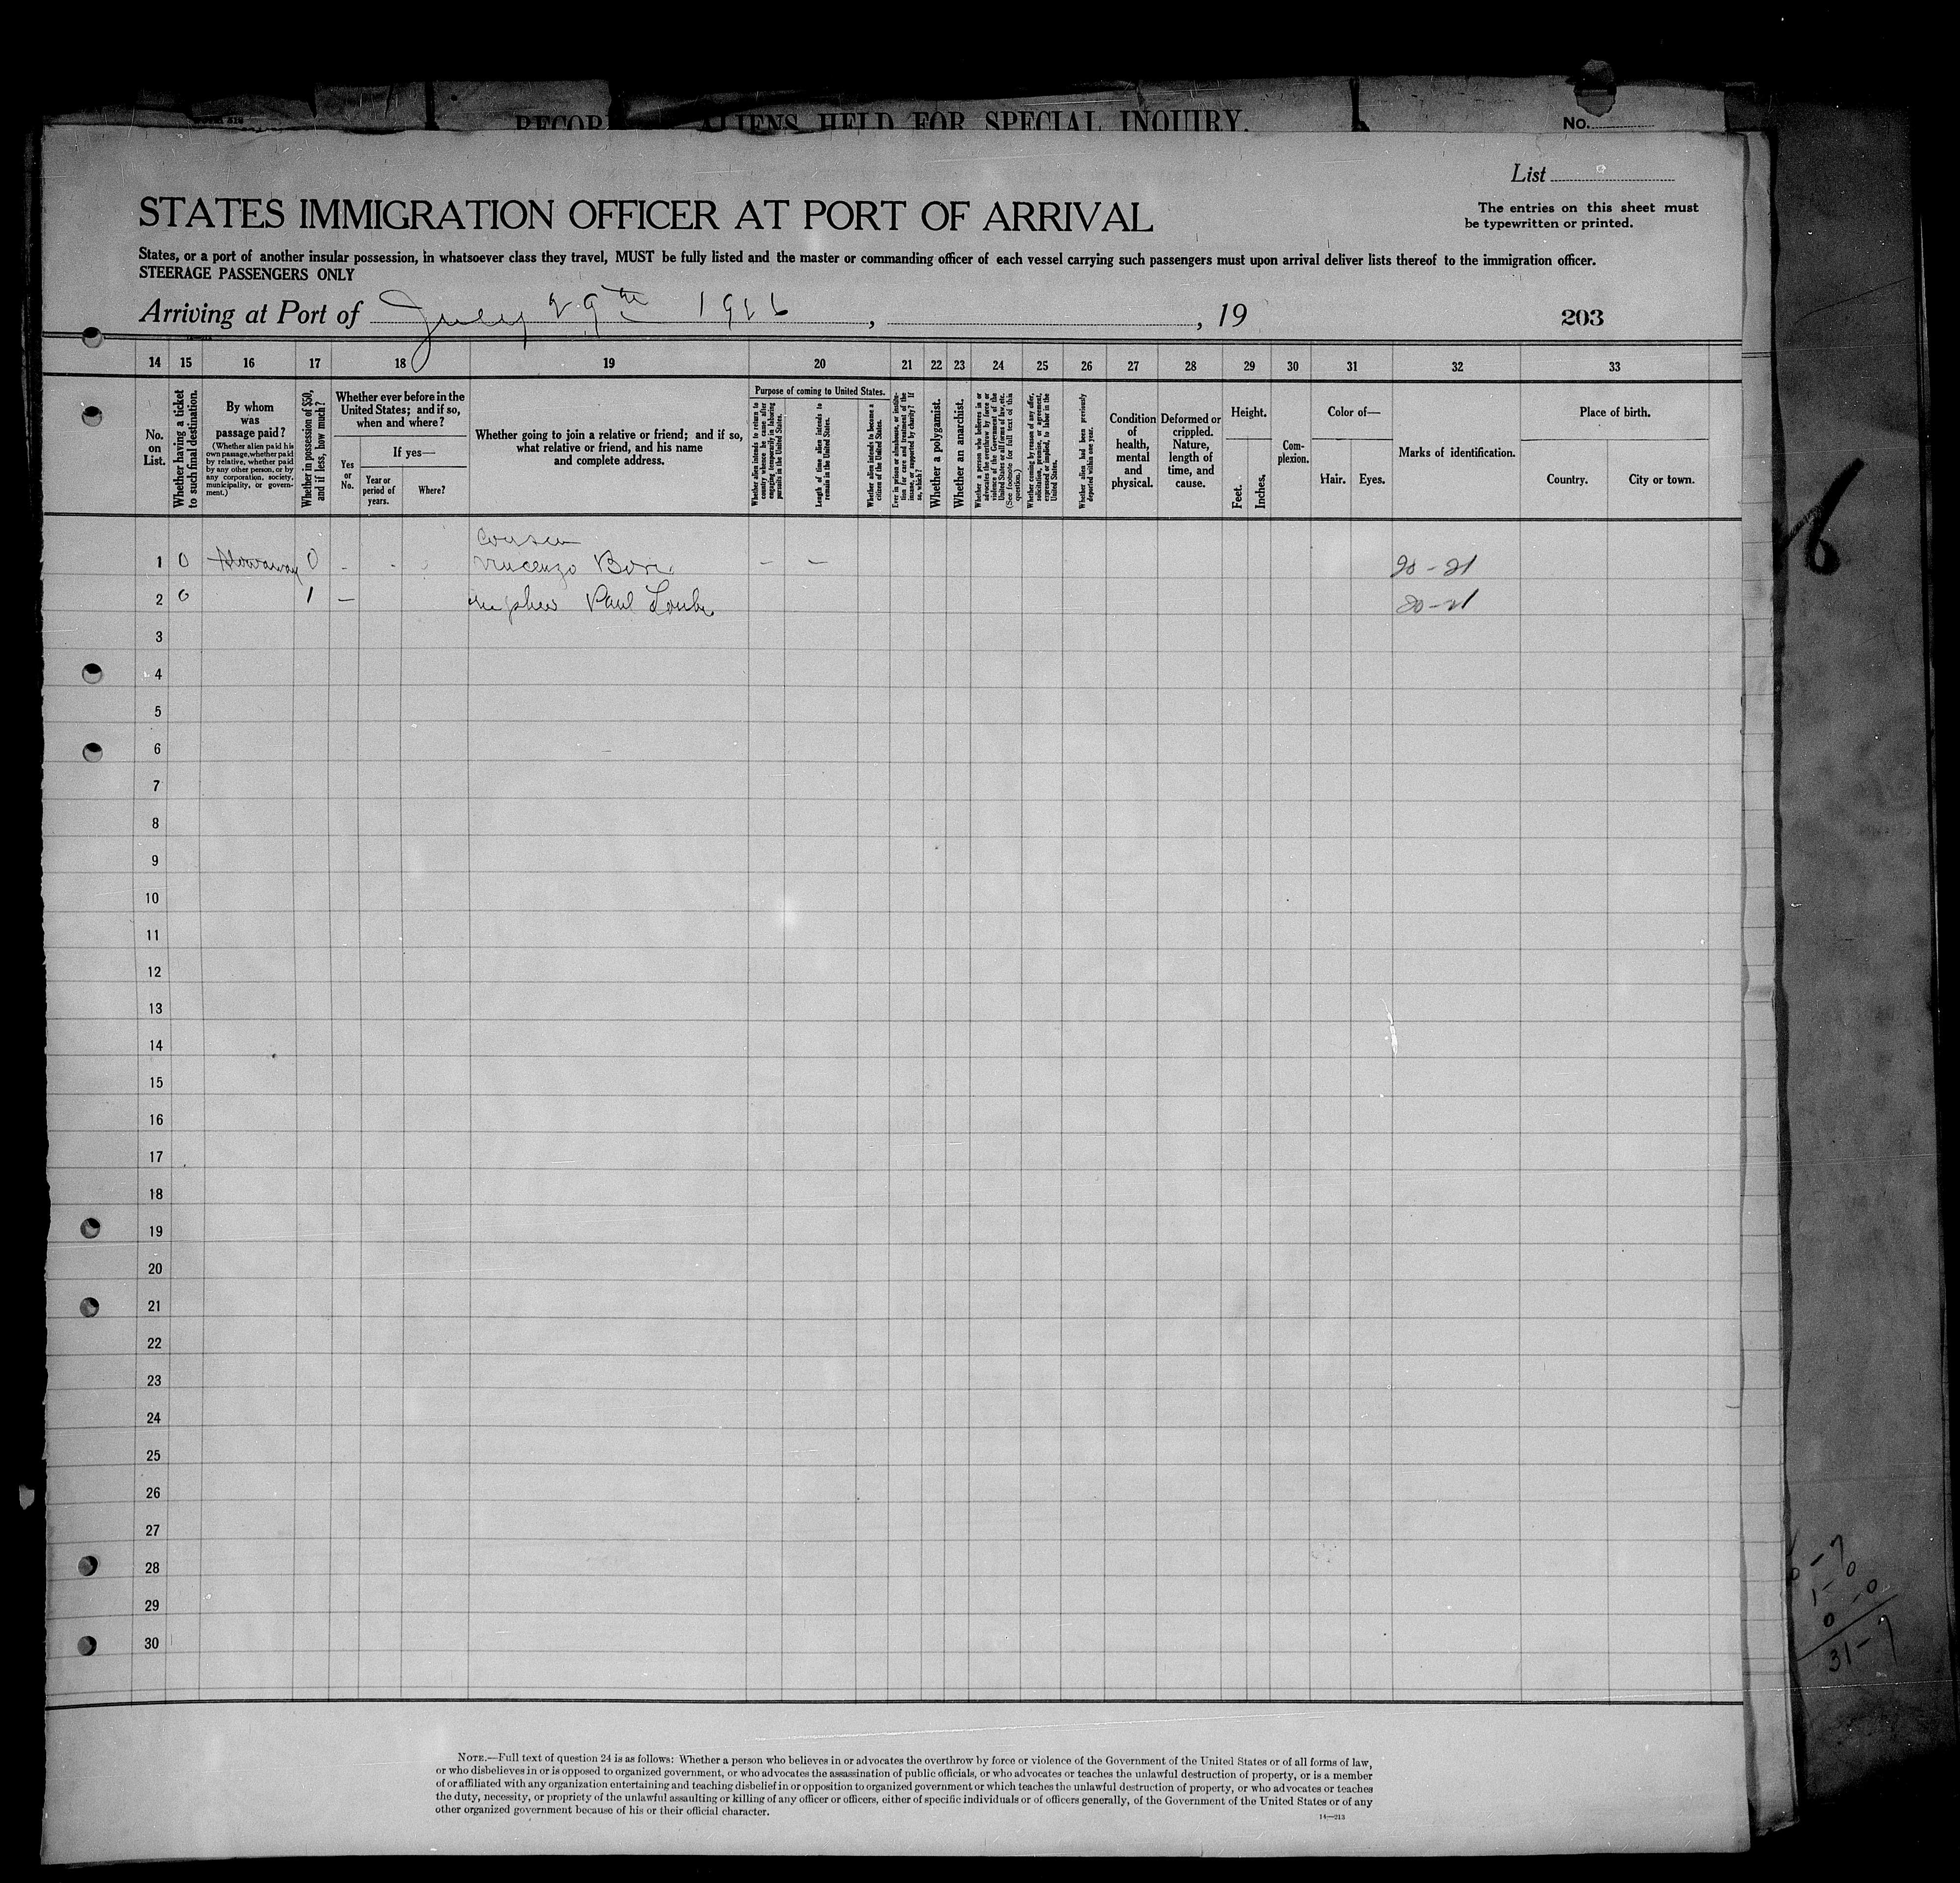 RECOR ALIENS HELD FOR SPECIAL INQUIRY.
No.
List
STATES IMMIGRATION OFFICER AT PORT OF ARRIVAL
The entries on this sheet must
be typewritten or printed.
States, or a port of another insular possession, in whatsoever class they travel, MUST be fully listed and the master or commanding officer of each vessel carrying such passengers must upon arrival deliver lists thereof to the immigration officer.
STEERAGE PASSENGERS ONLY
Arriving at Port of July 29th 1926, , 19
203
14 15 16 17 18 19 20 21 22 23 24 25 26 27 28 29 30 31 32 33
No. on List.
Whether having a ticket to such final destination.
By whom was passage paid?
(Whether alien paid his own passage, whether paid by relative, whether paid by any other person, or by any corporation, society, municipality, or government.)
Whether in possession of $50, and if less, how much?
Whether ever before in the United States; and if so, when and where?
Yes or No.
If yes—
Year or period of years.
Where?
Whether going to join a relative or friend; and if so, what relative or friend, and his name and complete address.
Purpose of coming to United States.
Whether alien intends to return to country whence he came after engaging temporarily in laboring pursuits in the United States.
Length of time alien intends to remain in the United States.
Whether alien intends to become a citizen of the United States.
Ever in prison or almshouse, or institution for care and treatment of the insane, or supported by charity? If so, which?
Whether a polygamist.
Whether an anarchist.
Whether a person who believes in or advocates the overthrow by force or violence of the Government of the United States or all forms of law, etc. (See footnote for full text of this question.)
Whether coming by reason of any offer, solicitation, promise, or agreement, expressed or implied, to labor in the United States.
Whether alien had been previously deported within one year.
Condition of health, mental and physical.
Deformed or crippled. Nature, length of time, and cause.
Height.
Feet. Inches.
Complexion.
Color of—
Hair. Eyes.
Marks of identification.
Place of birth.
Country. City or town.
Cousin
1 0 Stowaway 0 - - Vincenzo Bori — — 20-21
2 0 1 — nephew Paul 20-21
3
4
5
6
7
8
9
10
11
12
13
14
15
16
17
18
19
20
21
22
23
24
25
26
27
28
29
30
6
-7
1-0
0-0
31-7
NOTE.—Full text of question 24 is as follows: Whether a person who believes in or advocates the overthrow by force or violence of the Government of the United States or of all forms of law,
or who disbelieves in or is opposed to organized government, or who advocates the assassination of public officials, or who advocates or teaches the unlawful destruction of property, or is a member
of or affiliated with any organization entertaining and teaching disbelief in or opposition to organized government or which teaches the unlawful destruction of property, or who advocates or teaches
the duty, necessity, or propriety of the unlawful assaulting or killing of any officer or officers, either of specific individuals or of officers generally, of the Government of the United States or of any
other organized government because of his or their official character.
14—213